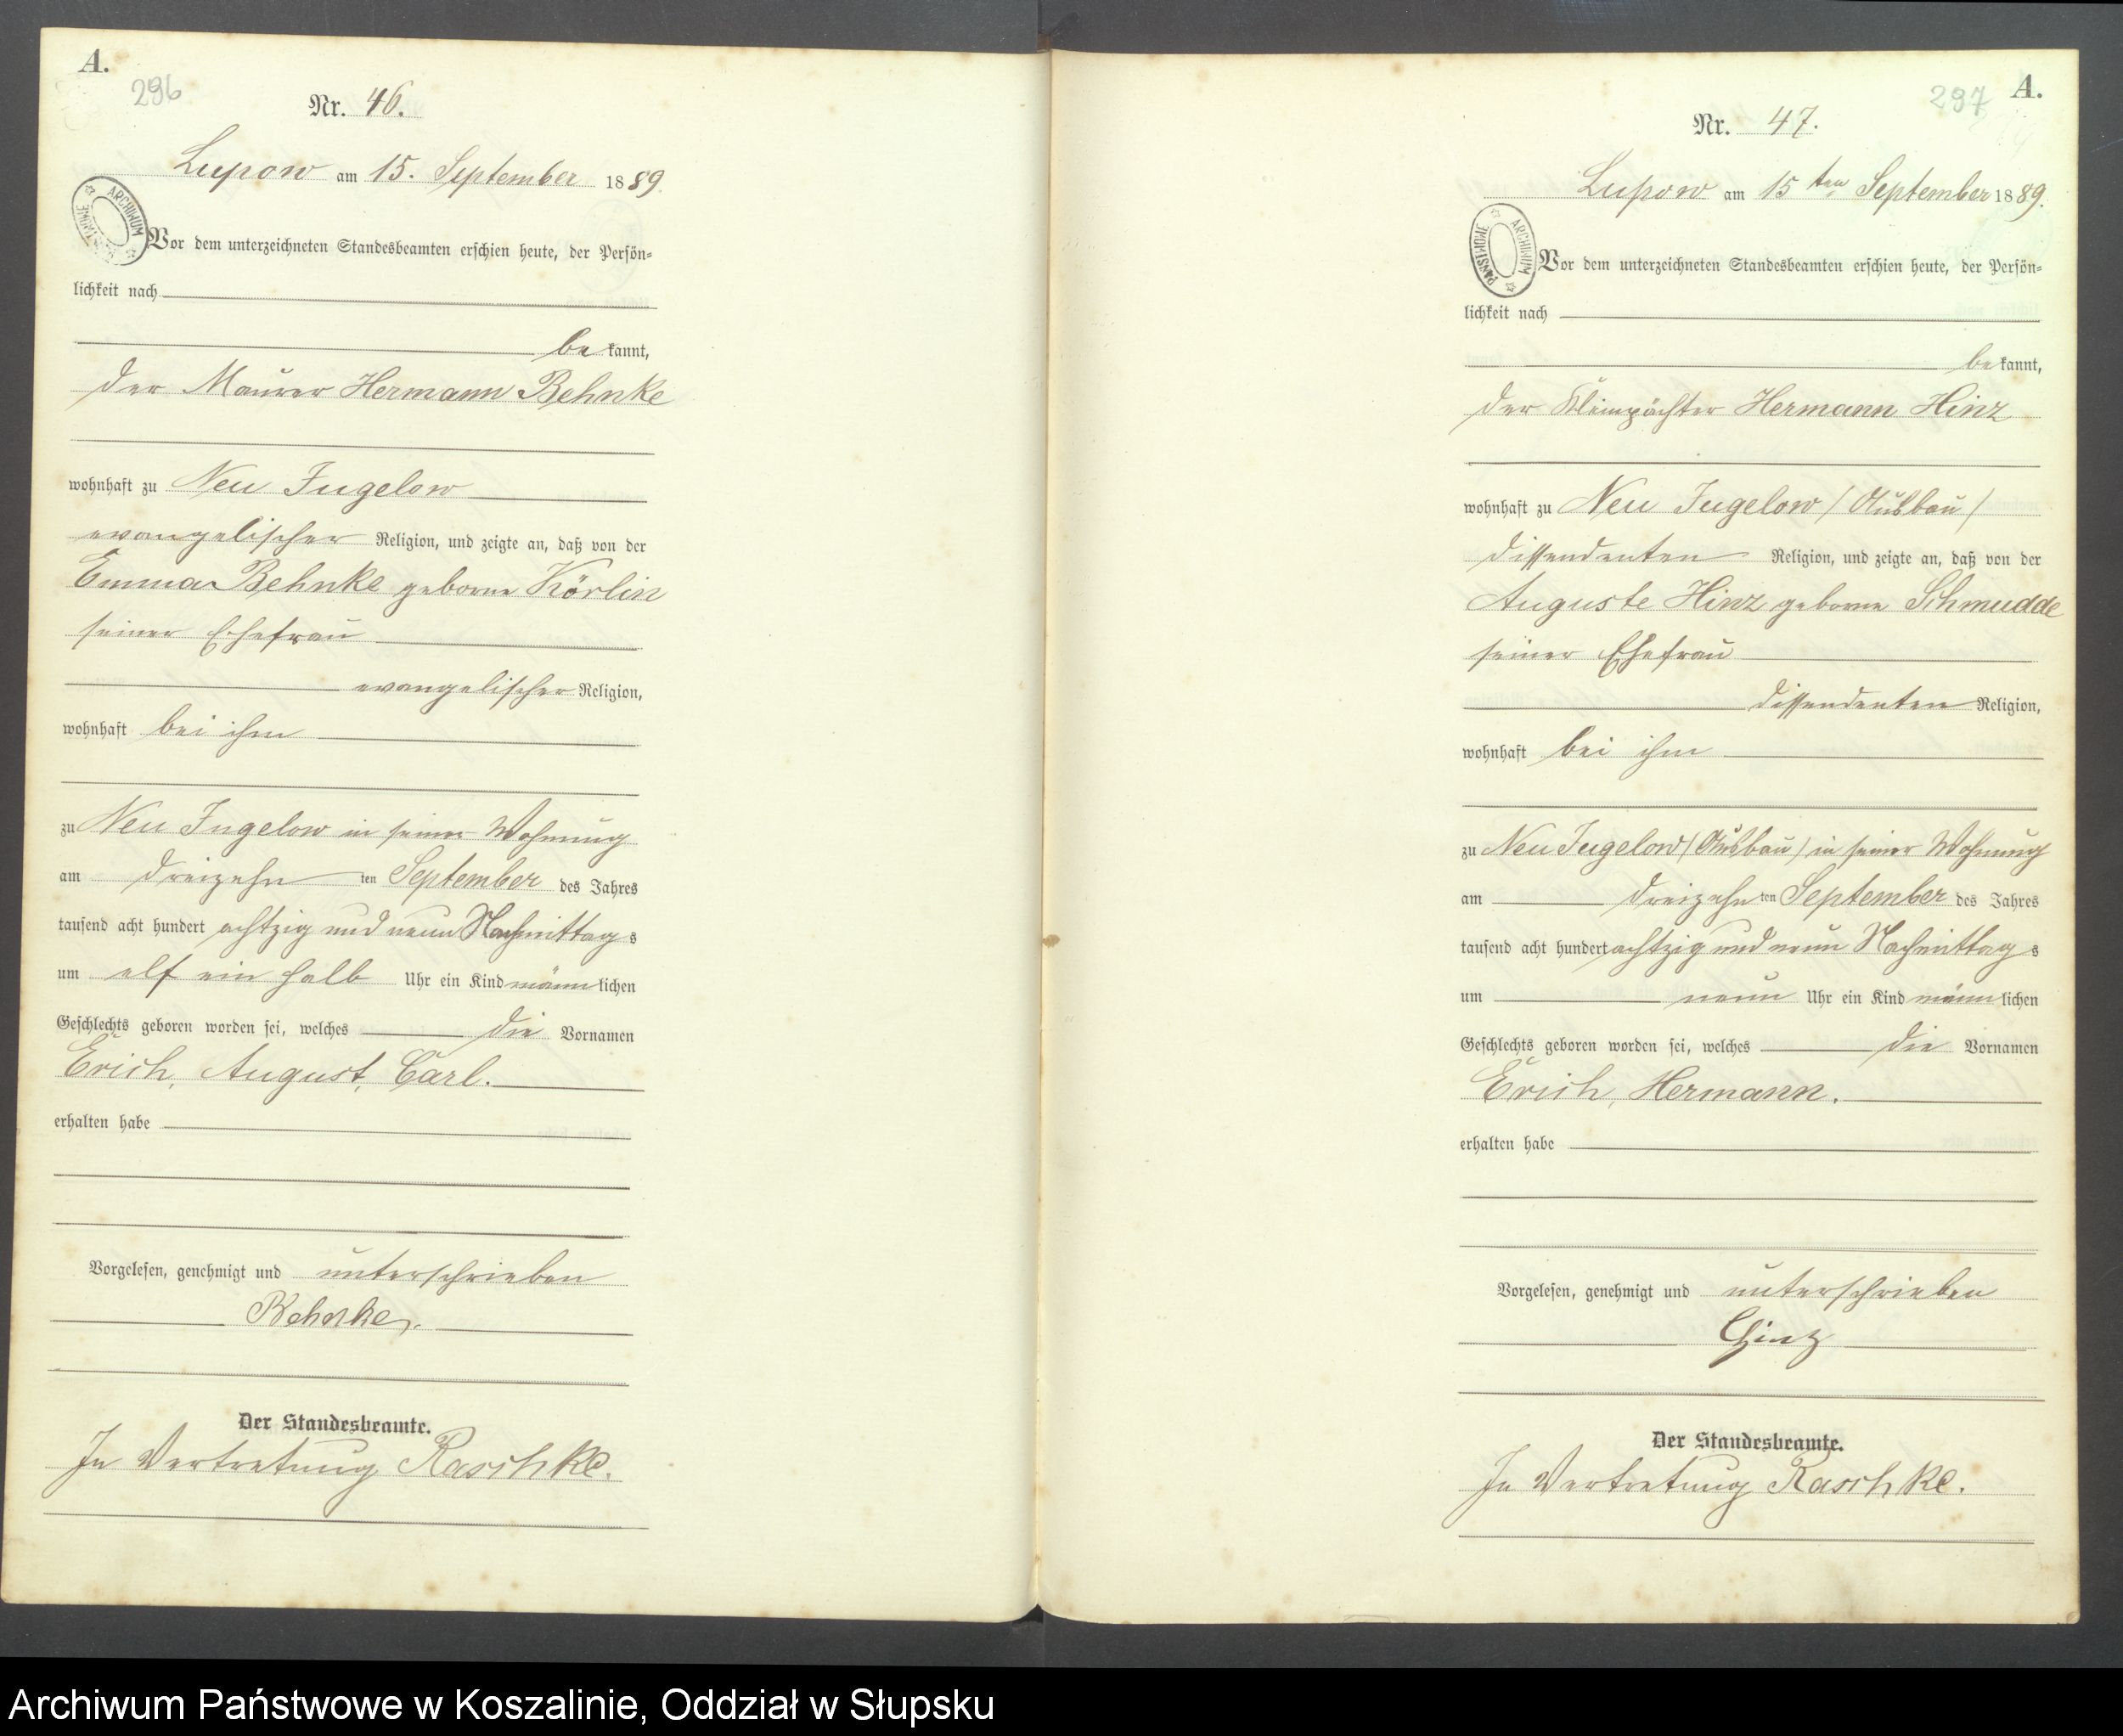 A.
296
Nr. 46.
Lupow am 15. September 1889.
ARCHIWUM PAŃSTWOWE
Vor dem unterzeichneten Standesbeamten erschien heute, der Persön-
lichkeit nach
bekannt,
der Maurer Hermann Behnke
wohnhaft zu Neu Jugelow
evangelischer Religion, und zeigte an, daß von der
Emma Behnke geborne Körlin
seiner Ehefrau
evangelischer Religion,
wohnhaft bei ihm
zu Neu Jugelow in seiner Wohnung
am dreizehn ten September des Jahres
tausend acht hundert achtzig und neun Nachmittags
um elf ein halb Uhr ein Kind männlichen
Geschlechts geboren worden sei, welches die Vornamen
Erich, August, Carl.
erhalten habe
Vorgelesen, genehmigt und unterschrieben
Behnke.
Der Standesbeamte.
In Vertretung Raschke.
A.
297
Nr. 47.
Lupow am 15ten September 1889.
ARCHIWUM PAŃSTWOWE
Vor dem unterzeichneten Standesbeamten erschien heute, der Persön-
lichkeit nach
bekannt,
der Kleinpächter Hermann Hinz
wohnhaft zu Neu Jugelow /Ausbau/
dissendenten Religion, und zeigte an, daß von der
Auguste Hinz geborne Schmudde
seiner Ehefrau
dissendenten Religion,
wohnhaft bei ihm
zu Neu Jugelow /Ausbau/ in seiner Wohnung
am dreizehn ten September des Jahres
tausend acht hundert achtzig und neun Nachmittags
um neun Uhr ein Kind männlichen
Geschlechts geboren worden sei, welches die Vornamen
Erich, Hermann.
erhalten habe
Vorgelesen, genehmigt und unterschrieben
Hinz
Der Standesbeamte.
In Vertretung Raschke.
Archiwum Państwowe w Koszalinie, Oddział w Słupsku